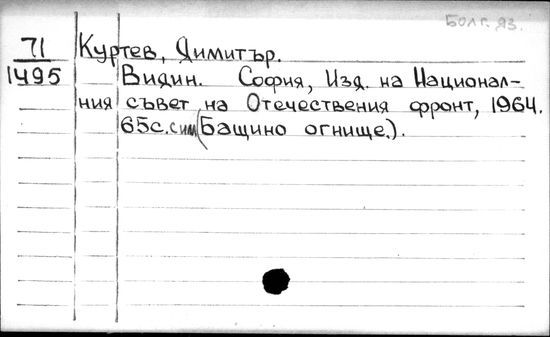 Болг. яз.
71 Куртев, Димитър.
1495 Видин. София, Изд. на Национал-
ния съвет на Отечествения фронт, 1964.
65с. с илл (Бащино огнище).